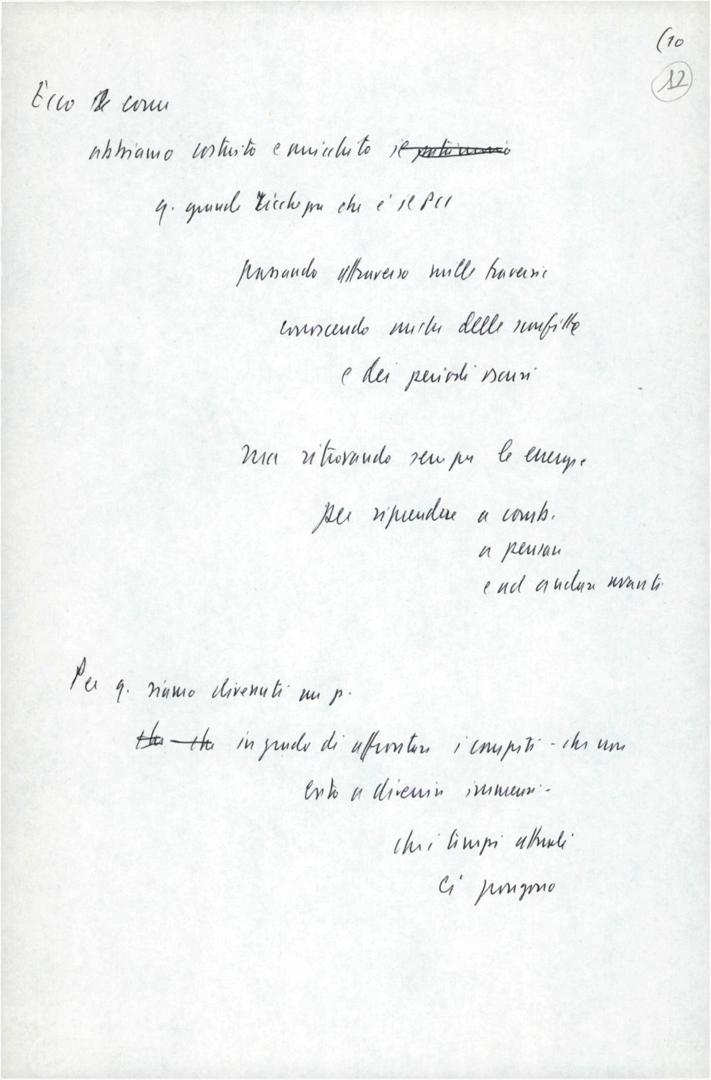 (10
12
Ecco come
abbiamo costruito e arricchito il patrimonio
q. grande ricchezza che è il PCI
passando attraverso mille traversie
conoscendo anche delle sconfitte
e dei periodi oscuri
ma ritrovando sempre le energie
per riprendere a comb.
a pensare
e ad andare avanti
Per q. siamo divenuti un p.
che che in grado di affrontare i compiti - che non
esito a divenire immensi -
che i tempi attuali
ci pongono